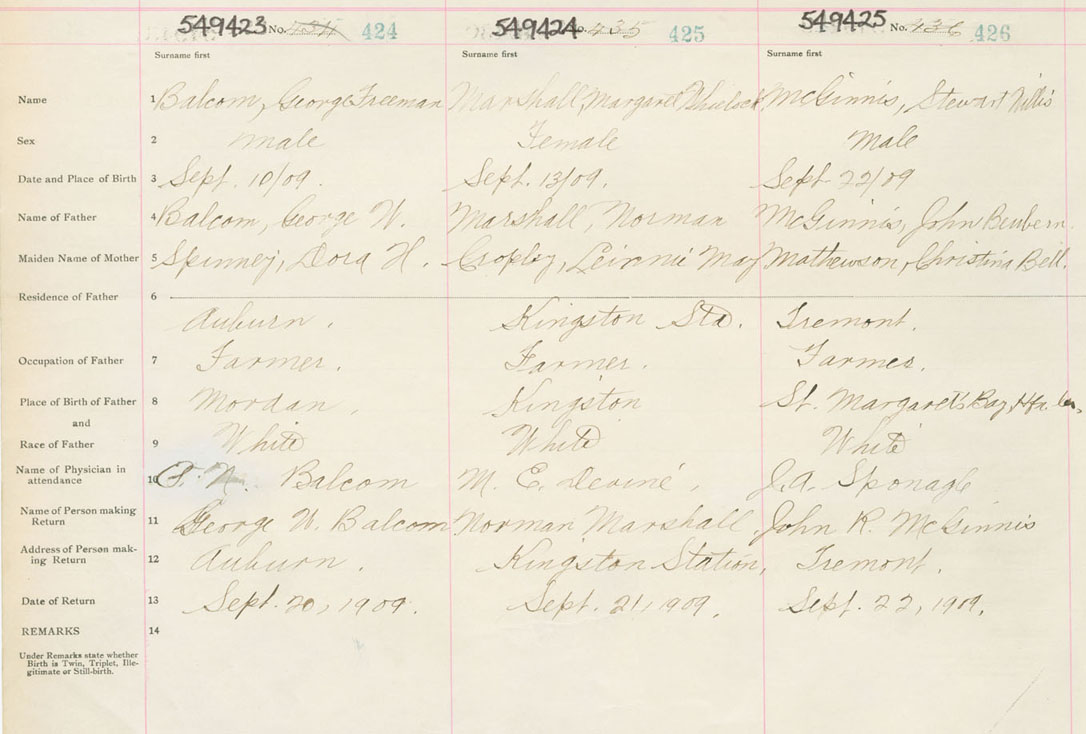 549423 No. 434 424 549424 No. 435 425 549425 No. 436 426
Surname first Surname first Surname first
Name 1 Balcom, George Freeman Marshall, Margaret Wheelock McGinnis, Stewart Willis
Sex 2 Male Female Male
Date and Place of Birth 3 Sept. 10/09. Sept. 13/09. Sept 22/09
Name of Father 4 Balcom, George W. Marshall, Norman McGinnis, John
Maiden Name of Mother 5 Spinney, Dora H. Cropley, May Mathewson, Christina Bell.
Residence of Father 6
Auburn. Kingston Sta. Tremont.
Occupation of Father 7 Farmer. Farmer. Farmer.
Place of Birth of Father 8 Mordan. Kingston St. Margaret's Bay, Hfx.
and
Race of Father 9 White White White
Name of Physician in
attendance 10 Balcom M. E. Devine, J.A. Sponagle
Name of Person making
Return 11 George W. Balcom Norman Marshall John R. McGinnis
Address of Person mak-
ing Return 12 Auburn. Kingston Station, Tremont.
Date of Return 13 Sept. 20, 1909. Sept. 21, 1909. Sept. 22, 1909.
REMARKS 14
Under Remarks state whether
Birth is Twin, Triplet, Ille-
gitimate or Still-birth.